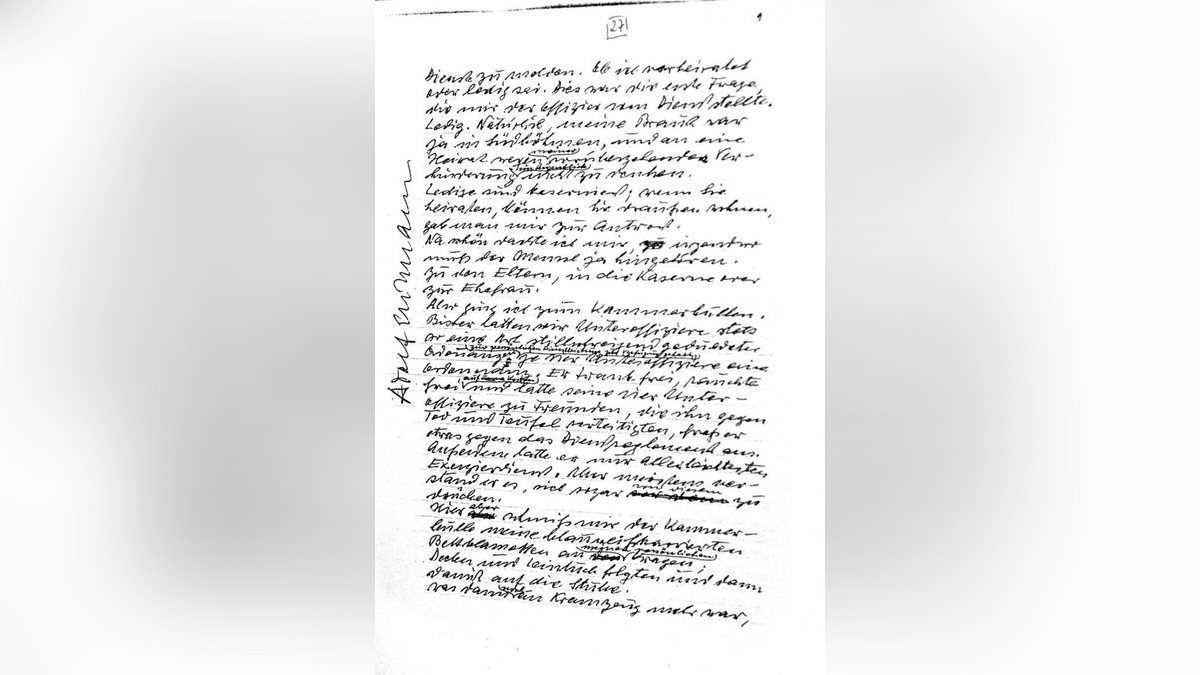 27
Dienst zu melden. Ob ich verheiratet
oder ledig sei. Dies war die erste Frage,
die mir der Offizier vom Dienst stellte.
Ledig. Natürlich, meine Braut war
ja in Südböhmen, und an eine
meiner
Heirat wegen vorübergehender Ver-
im Augenblick
hinderung nicht zu denken.
Ledige sind kaserniert; wenn Sie
heiraten, können Sie draußen wohnen,
gab man mir zur Antwort.
Na schön dachte ich mir, irgendwo
muß der Mensch ja hingehören.
Zu den Eltern, in die Kaserne oder
zur Ehefrau.
Also ging ich zum Kammerbullen.
Bisher hatten wir Unteroffiziere stets
so eine Art stillschweigend geduldeter
zur persönlichen Dienstleistung
Ordonanz; je vier Unteroffiziere eine
Ordonanz. Er trank frei, rauchte
auf ihre Kosten
frei und hatte seine vier Unter-
offiziere zu Freunden, die ihn gegen
Tod und Teufel verteitigten, fraß er
etwas gegen das Dienstreglement aus.
Außerdem hatte er nur allerleichtesten
Exerzierdienst. Aber meistens ver-
von diesem
stand er es, sich sogar zu
drücken.
aber
Hier schmiß mir der Kammer-
bulle meine blauweißkarierten
meinen persönlichen
Bettklamotten an Kragen;
Decken und Leintuch folgten und dann
damit auf die Stube.
was dann an Kramzeug mehr war,
Adolf Eichmann